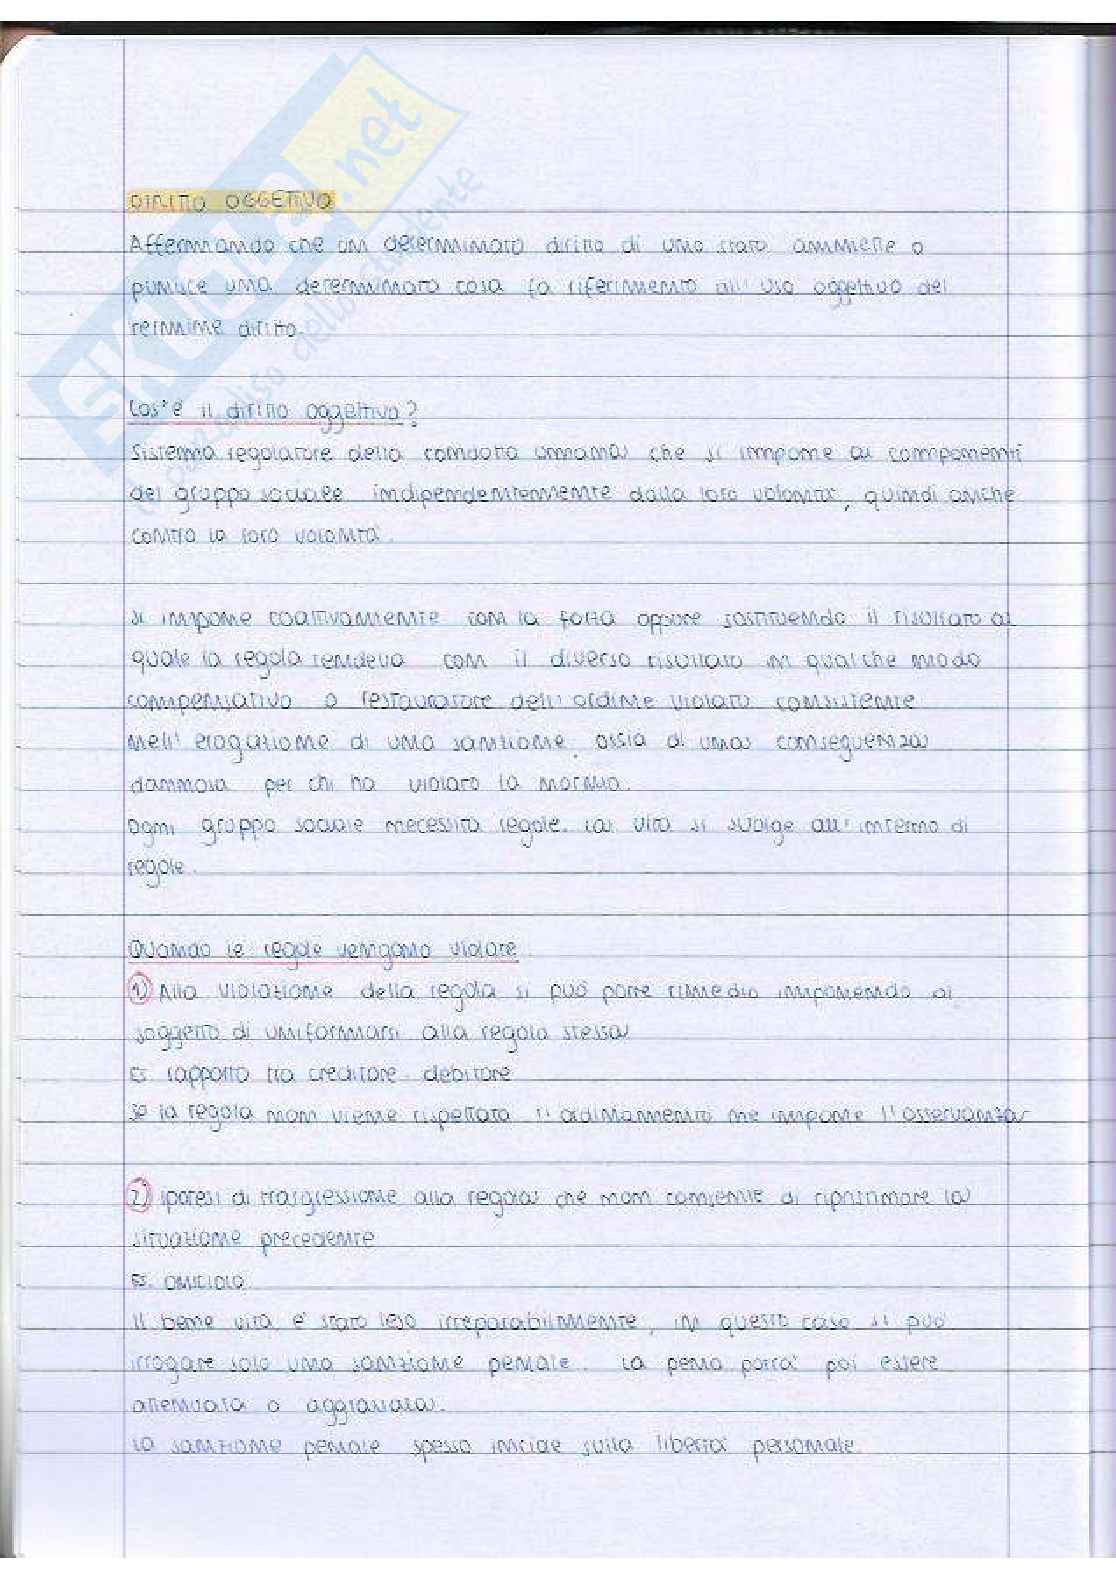 SKUOLA.net
DIRITTO OGGETTIVO
Affermando che un determinato diritto di uno stato ammette o
punisce una determinata cosa fa riferimento all'uso oggettivo del
termine diritto.
Cos'è il diritto oggettivo?
Sistema regolatore della condotta umana che si impone ai componenti
del gruppo sociale indipendentemente dalla loro volontà, quindi anche
contro la loro volontà.
Si impone coattivamente con la forza oppure sostituendo il risultato al
quale la regola tendeva con il diverso risultato in qualche modo
compensativo o restauratore dell'ordine violato consistente
nell'erogazione di una sanzione, ossia di una conseguenza
dannosa per chi ha violato la norma.
Ogni gruppo sociale necessita regole. La vita si svolge all'interno di
regole.
Quando le regole vengono violate.
1) Alla violazione della regola si può porre rimedio imponendo al
soggetto di uniformarsi alla regola stessa
Es. rapporto tra creditore - debitore
Se la regola non viene rispettata l'ordinamento ne impone l'osservanza
2) Ipotesi di trasgressione alla regola che non consente di ripristinare la
situazione precedente
Es. omicidio
Il bene vita è stato leso irreparabilmente, in questo caso si può
irrogare solo una sanzione penale. La pena potrà poi essere
attenuata o aggravata.
La sanzione penale spesso incide sulla libertà personale.